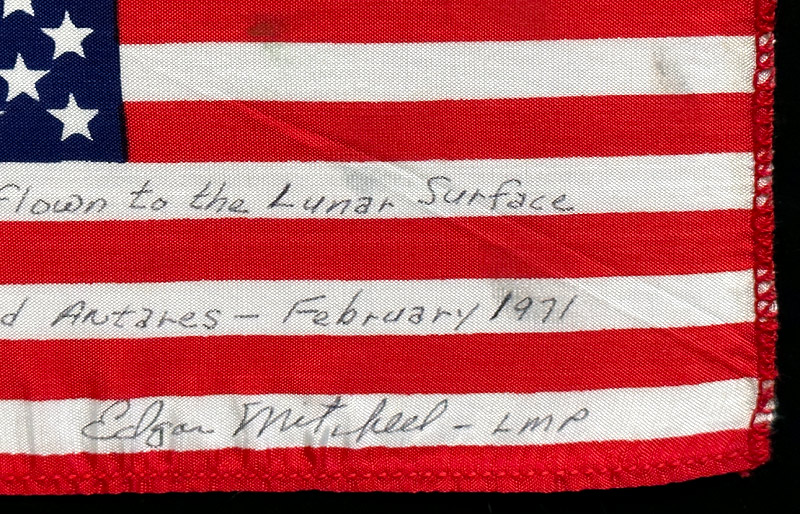 Flown to the Lunar Surface
d Antares - February 1971
Edgar Mitchell - LMP